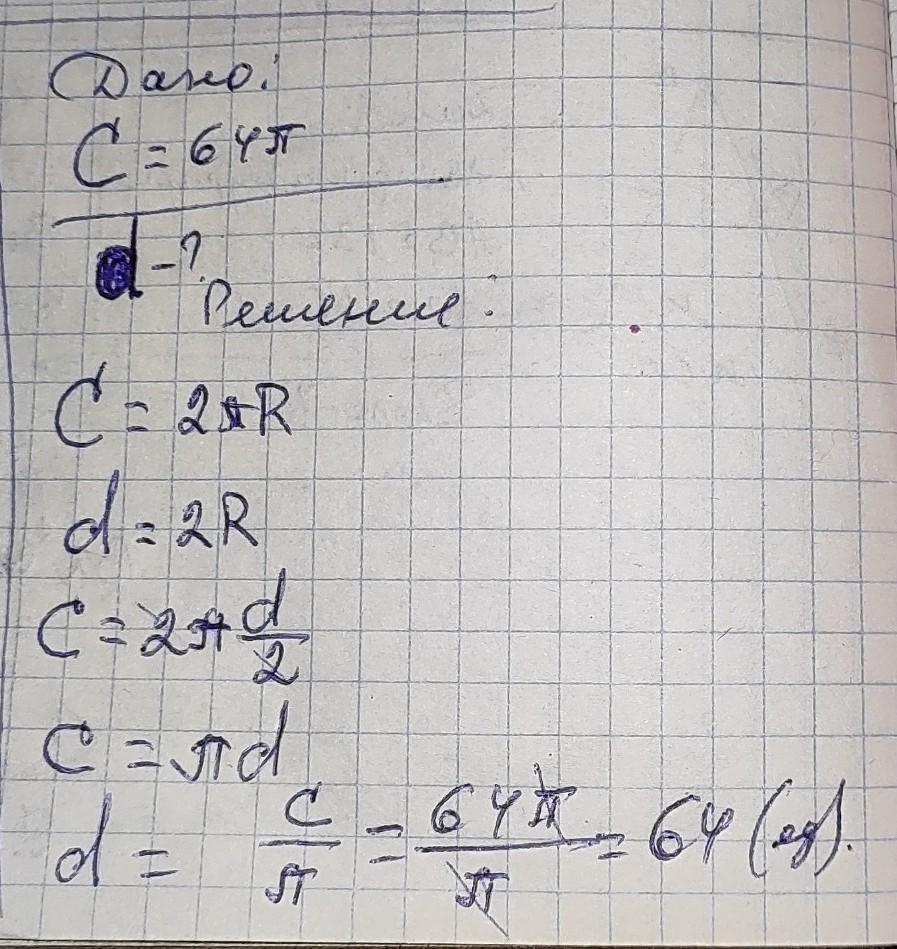 Дано:
C = 64π
d - ?
Решение:
C = 2πR
d = 2R
C = 2π d/2
C = πd
d = C/π = 64π/π = 64 (ед).